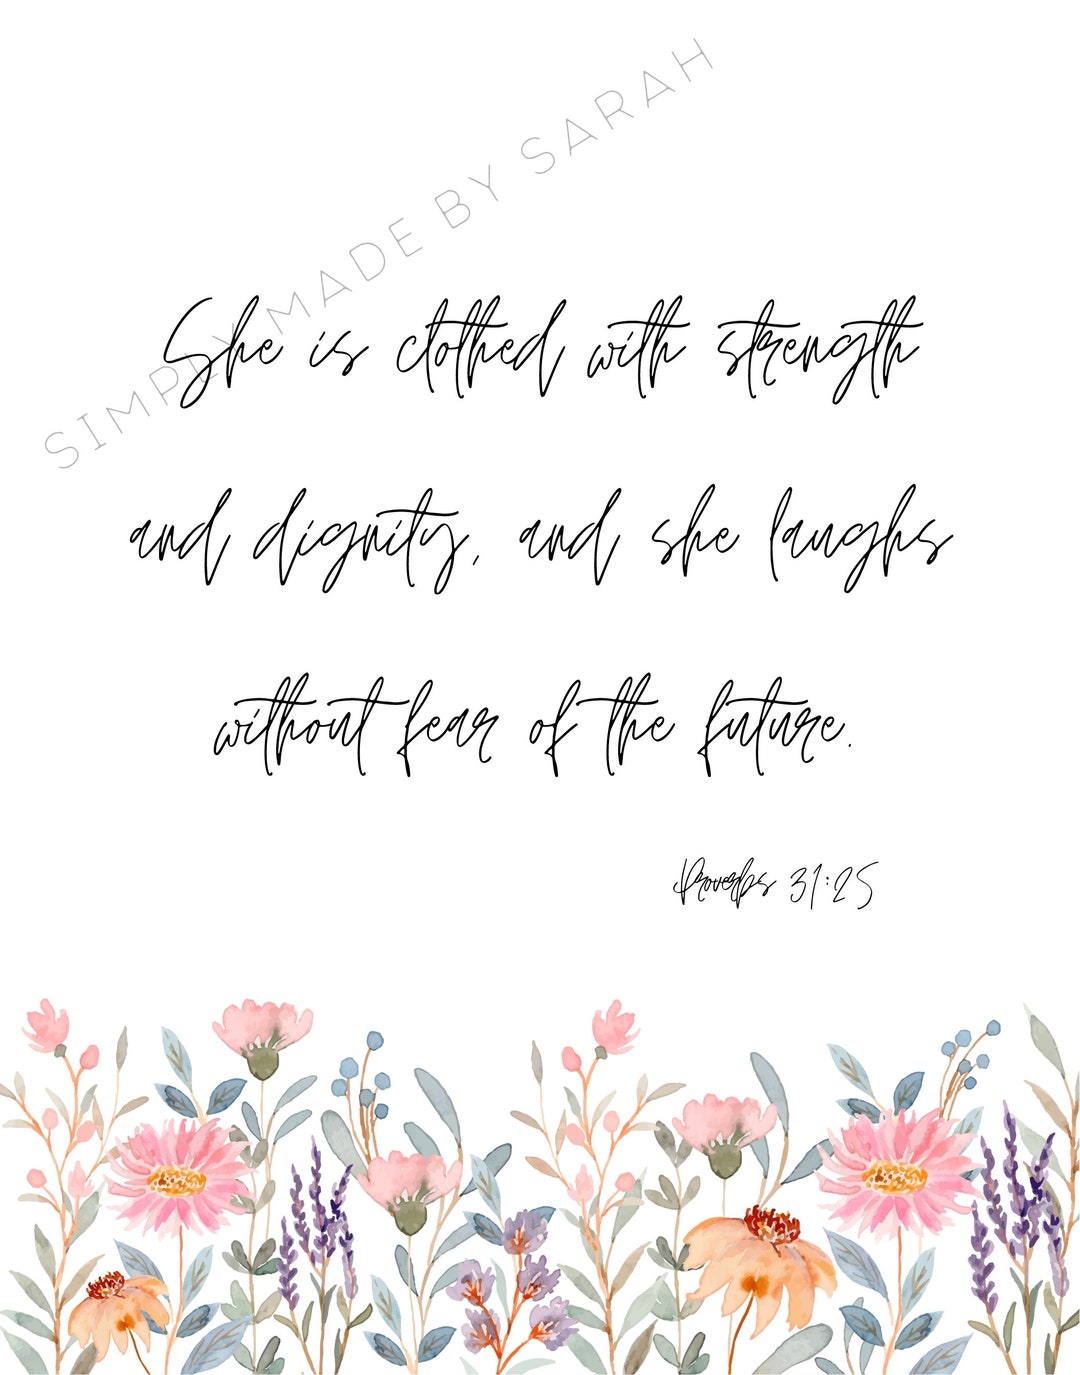 SIMPLY MADE BY SARAH
She is clothed with strength
and dignity, and she laughs
without fear of the future.
Proverbs 31:25